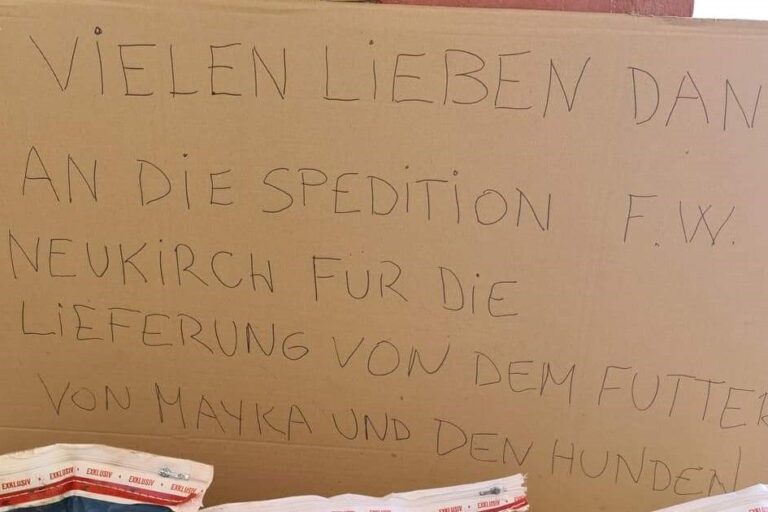 VIELEN LIEBEN DAN
AN DIE SPEDITION F.W.
NEUKIRCH FÜR DIE
LIEFERUNG VON DEM FUTTER
VON MAYKA UND DEN HUNDEN
EXKLUSIV · EXKLUSIV · EXKLUSIV · EXKLUSIV
EXKLUSIV · EXKLUSIV · EXKLUSIV